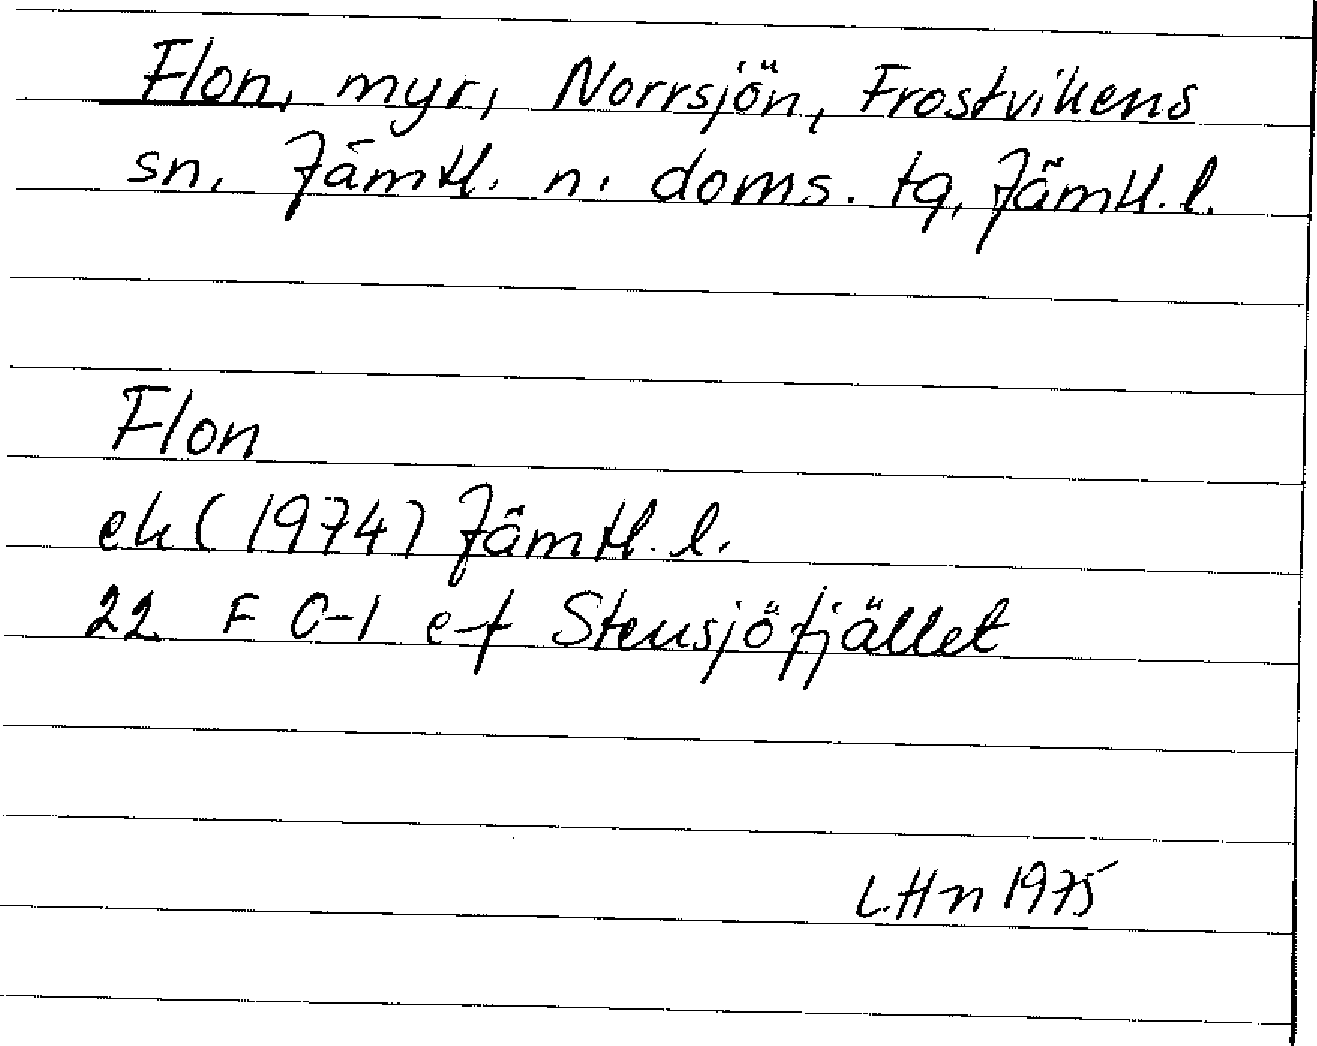 Flon, myr, Norrsjön, Frostvikens
sn, Jämtl. n. doms. tg, Jämtl. l.
Flon
ek (1974) Jämtl. l.
22 F 0-1 e-f Stensjöfjället
L.Hn 1975